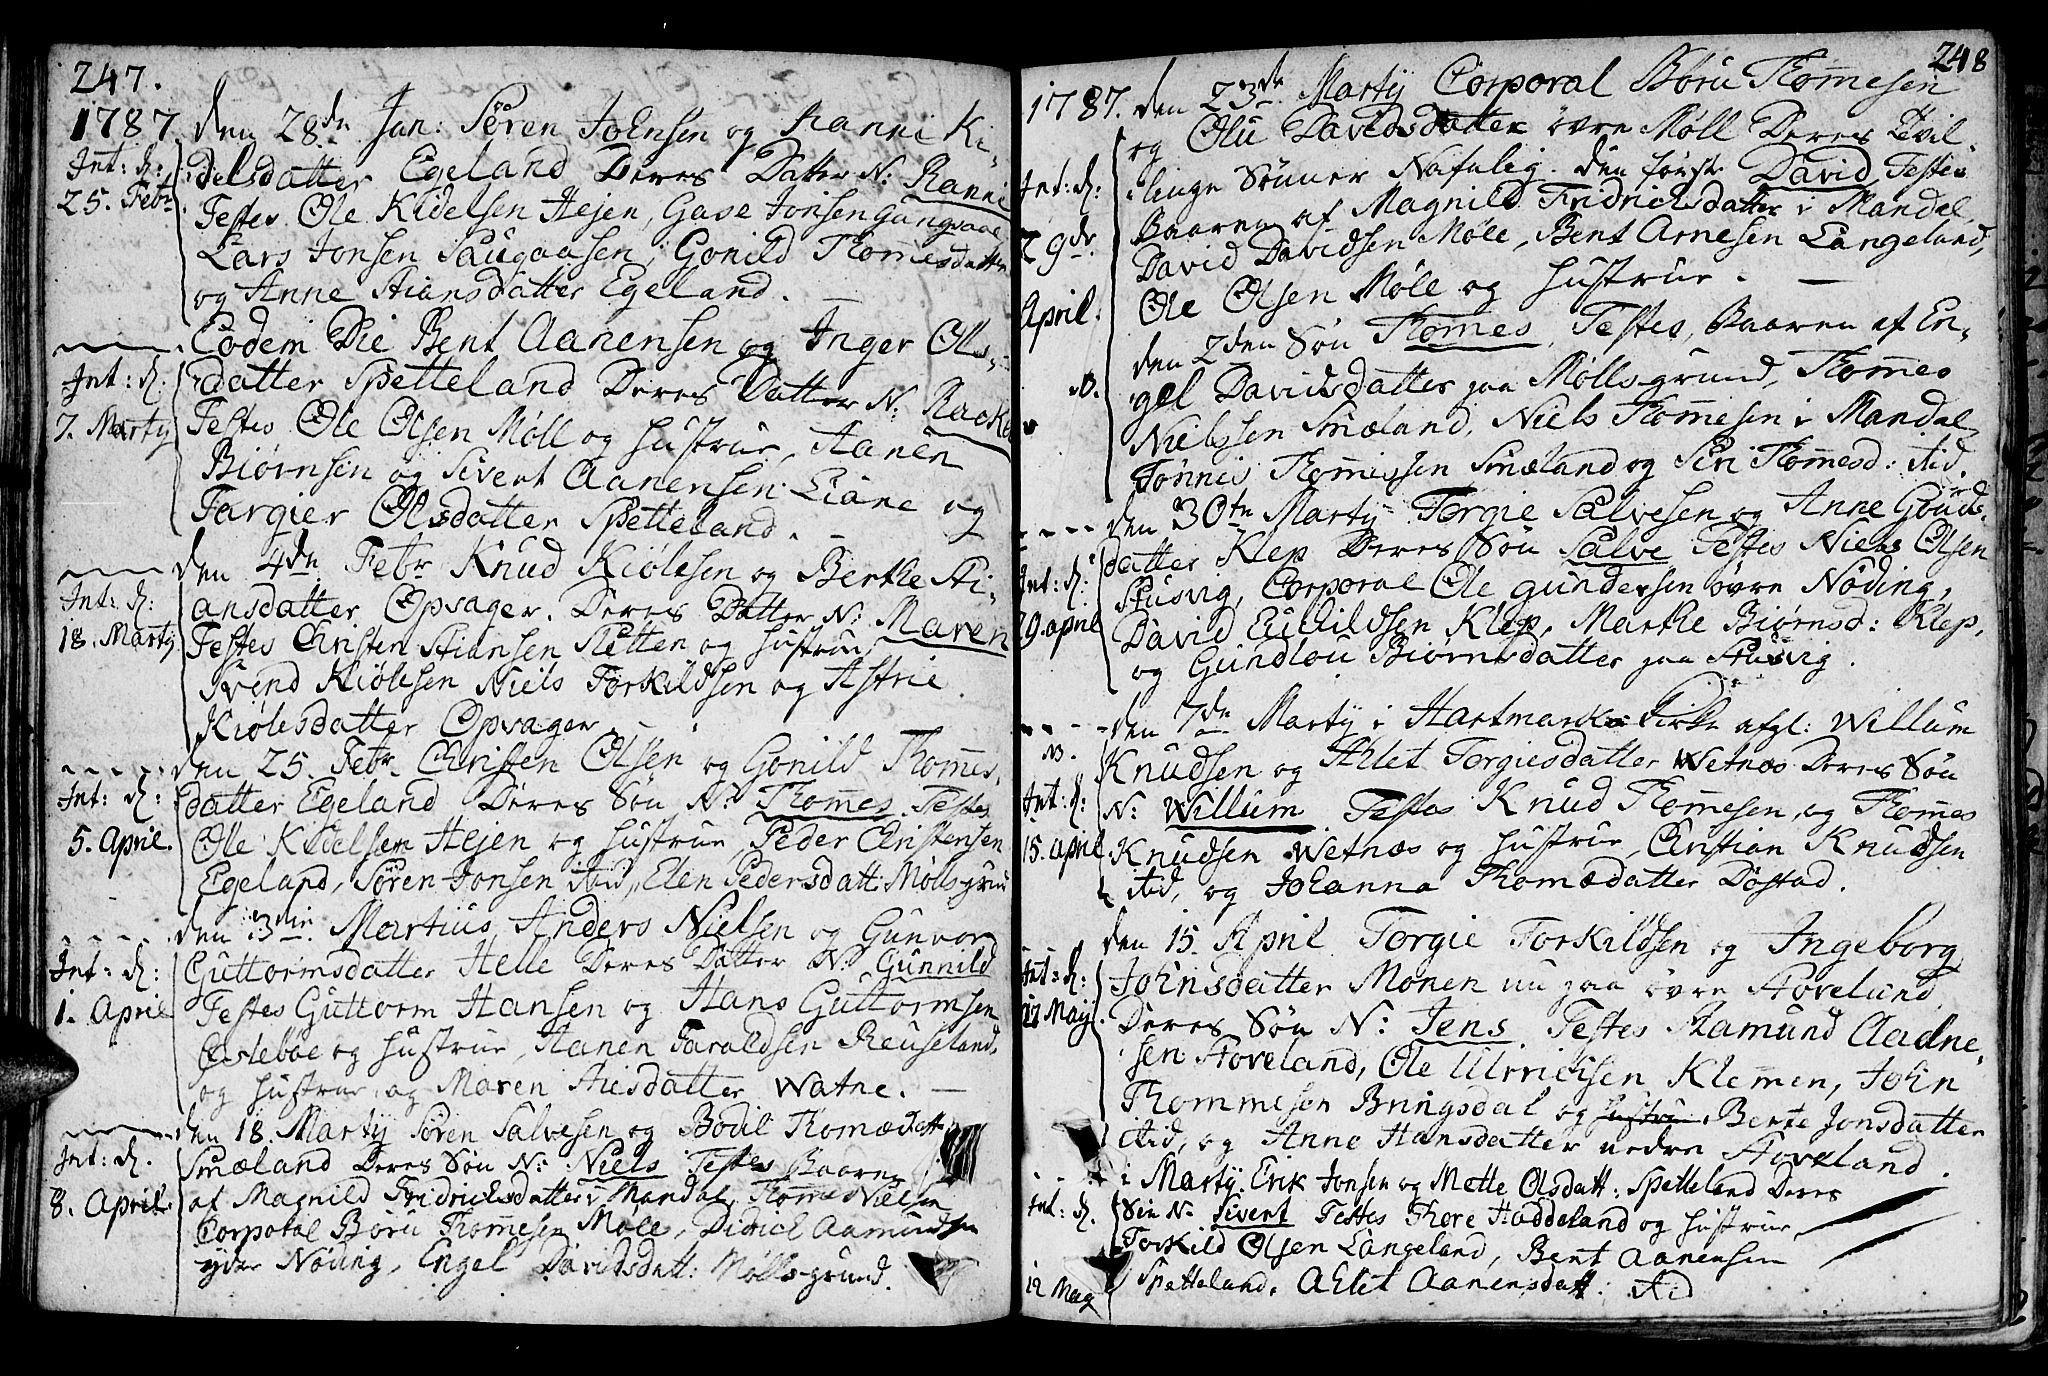 247.
1787. den 28de Jan: Søren Johnsen og Ranni Ki-
Int: K: delsdatter Egeland Deres Datter N: Ranni
25. Febr Testes Ole Kidelsen Hejen, Gase Jonsen
Lars Jonsen Saugaasen, Gonild Thom̅esdatter
og Anne Stiansdatter Egeland.
Eodem Die Bent Aanensen og Inger Ols-
Int: K: datter Spetteland Deres Datter N: Rackel
7. Martÿ Testes Ole Olsen Møll og Hustrue, Aanen
Biørnsen og Sivert Aanensen Liane og
Targier Olsdatter Spetteland.
den 4de Febr Knud Kiølesen og Berthe Sti-
Int: K: ansdatter Opvager. Deres Datter N: Maren
18. Martÿ Testes Christen Stiansen Sletten og Hustrue,
Svend Kiølesen Niels Torkildsen og Astrie
Kiølesdatter Opvager
den 25. Febr. Christen Olsen og Gonild Thom̅es-
Int: K: datter Egeland Deres Søn N: Thom̅es Testes
5. April. Ole Kidelsen Hejen og Hustrue Peder Christensen
Egeland, Søren Jonsen ibid, Elen Pedersdatt: Mølls-grun
den 3die Martius Anders Nielsen og Gunvor
Int: K: Guttormsdatter Helle Deres Datter N: Gunnild
1. April Testes Guttorm Hansen og Hans Guttormsen
Osleboe og Hustrue, Aanen Taraldsen Reuseland
og Hustrue og Maren Aiesdatter Watne.
den 18. Martÿ Søren Salvesen og Bodil Thomædatt
Int: K. Smæland Deres Søn N: Niels Testes Baaren
8. April af Magnild Fridrichsdatter i Mandal, Thom̅es Nielsen
Corporal Børu Thom̅esen Møle, Didrich Aamundsen
ÿdre Nøding, Engel Davidsdatt: Mølls-grund.
248
1787. den 23de Martÿ Corporal Børu Thom̅esen
og Olu Davidsdatter øvre Møll Deres Tvil-
Int: K: linge Sønner Nafnlig. den første David Testes
Baaren af Magnild Fridrichsdatter i Mandal,
29de David Davidsen Møle, Bent Arnesen Langeland,
April. Ole Olsen Møle og Hustrue.
den 2den Søn Thom̅es, Testes, Baaren af En-
gel Davidsdatter paa Mølls-grund, Thom̅es
Nielssen Smæland, Niels Thom̅esen i Mandal,
Tønnis Thom̅issen Smæland og Siri Thom̅esd: ibid.
den 30te Martÿ Torgie Salvesen og Anne Gouds-
datter Klep Deres Søn Salve Testes Niels Olsen
Int: K: Stusvig, Corporal Ole Gundersen øvre Nøding,
29. april David Euchildsen Klep, Marthe Biørnsd: Klep,
og Gundlou Biørnsdatter paa Stusvig.
den 7de Martÿ i Hartmark Kirke afgl: Willum
N. Knudsen og Ahlet Torgiesdatter Wetnøs Deres Søn
Int: K: N: Willum Testes Knud Thom̅esen, og Thom̅es
15. April Knudsen Wetnøs og Hustrue, Christian Knudsen
ibid, og Johanna Thomædatter Døstad.
den 15 April Torgie Torkildsen og Ingeborg
Int: K: Johnsdatter Monen nu paa øvre Stoveland
12 Maÿ. Deres Søn N: Jens. Testes Aamund Aadne-
sen Stoveland, Ole Ulrrichsen Klemen, John
Thommesen Bringsdal og Hustrue, Berte Jonsdatter
ibid, og Anne Hansdatter nedre Stoveland.
i Martÿ Erik Jonsen og Mette Olsdatt: Spetteland Deres
Int: K. Søn N: Sivert Testes Thore Haddeland og Hustrue,
Torkild Olsen Langeland, Bent Aanensen
12 Maÿ Spetteland, Ahlet Aanensdatt: ibid